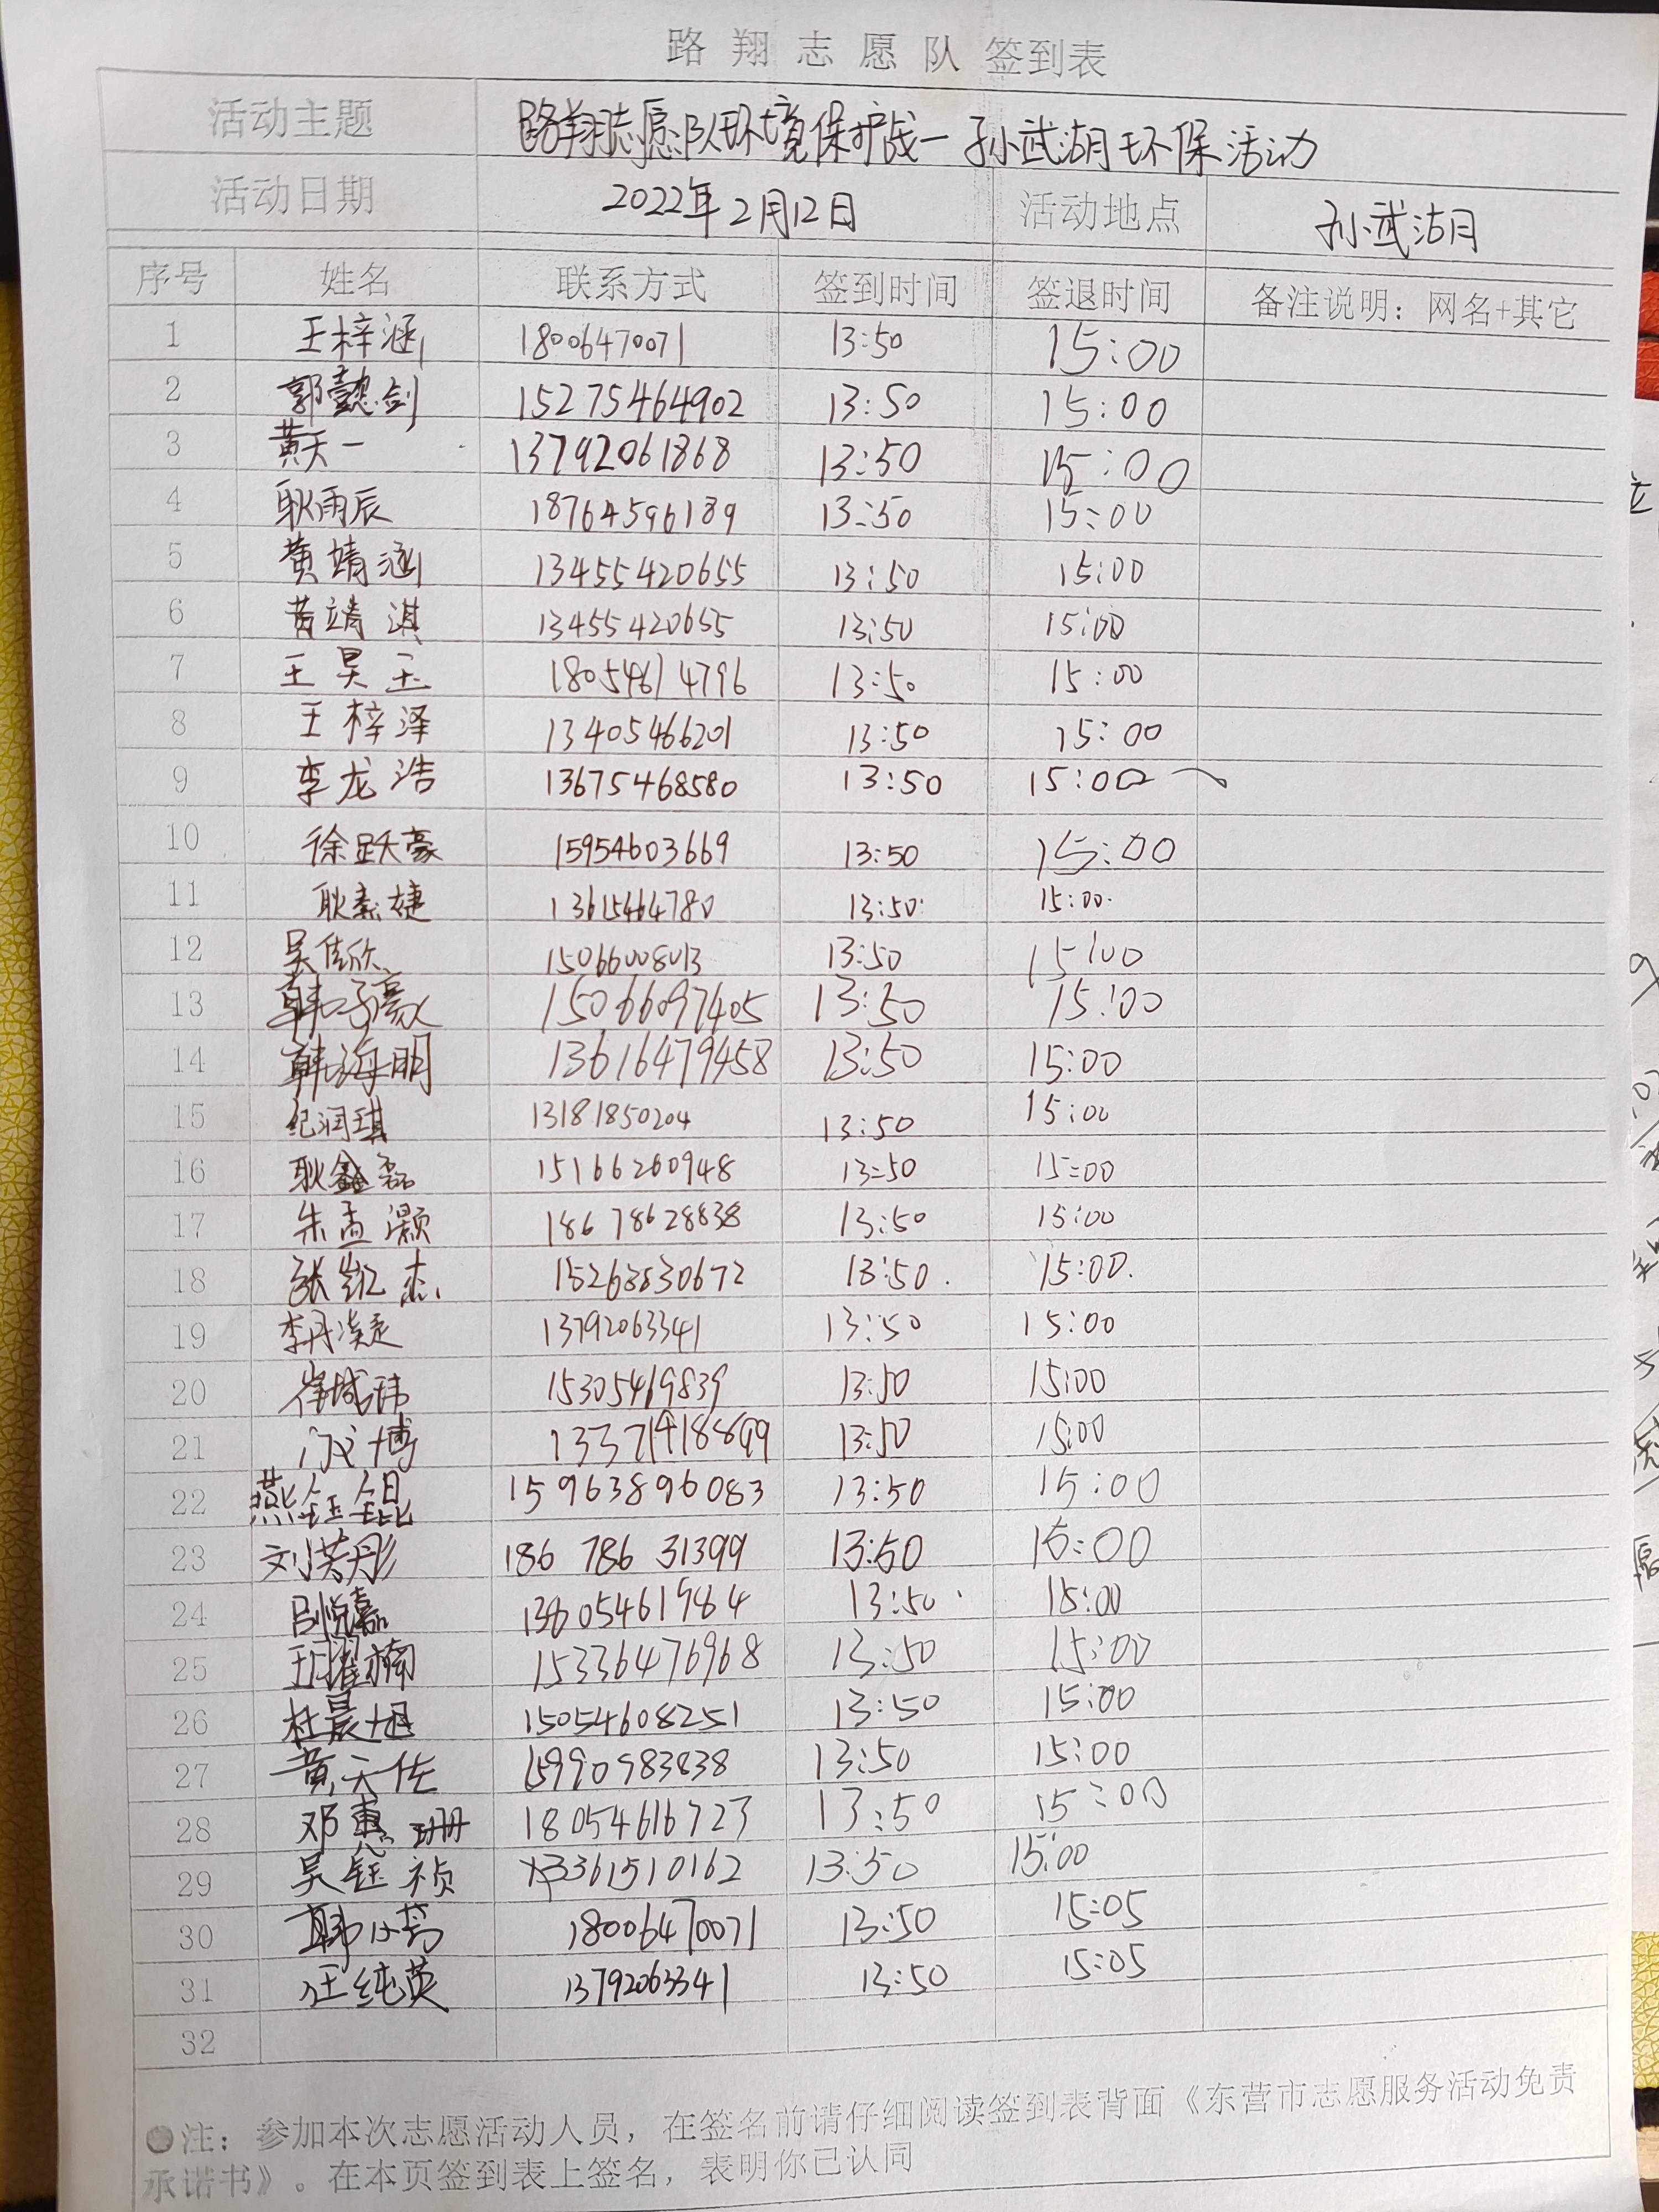 路翔志愿队签到表
活动主题 路翔志愿队环境保护战一孙武湖环保活动
活动日期 2022年2月12日 活动地点 孙武湖
序号 姓名 联系方式 签到时间 签退时间 备注说明：网名+其它
1 王梓涵 18006470071 13:50 15:00
2 郭懿剑 15275464902 13:50 15:00
3 黄天一 13792061868 13:50 15:00
4 耿雨辰 18764596189 13:50 15:00
5 黄靖涵 13455420655 13:50 15:00
6 黄靖淇 13455420655 13:50 15:00
7 王昊玉 18054614796 13:50 15:00
8 王梓泽 13405466201 13:50 15:00
9 李龙浩 13675468580 13:50 15:00
10 徐跃豪 15954603669 13:50 15:00
11 耿素婕 13615464780 13:50 15:00
12 吴佳欣 15066008013 13:50 15:00
13 韩子豪 15066097405 13:50 15:00
14 韩海明 13616479458 13:50 15:00
15 纪润琪 13181850204 13:50 15:00
16 耿鑫磊 15166260948 13:50 15:00
17 朱孟灏 18678628838 13:50 15:00
18 张凯杰 15263830672 13:50 15:00
19 李丹凌 13792063341 13:50 15:00
20 崔城玮 15305419839 13:50 15:00
21 博 13371418899 13:50 15:00
22 燕钰锟 15963896083 13:50 15:00
23 刘芙彤 186 786 31399 13:50 15:00
24 悦嘉 13805461984 13:50 15:00
25 王耀楠 15336476968 13:50 15:00
26 杜晨旭 15054608251 13:50 15:00
27 黄天佐 15990983838 13:50 15:00
28 邓惠珊 18054616723 13:50 15:00
29 吴钰祯 13361510162 13:50 15:00
30 韩 18006470071 13:50 15:05
31 汪纯英 13792063341 13:50 15:05
32
●注：参加本次志愿活动人员，在签名前请仔细阅读签到表背面《东营市志愿服务活动免责
承诺书》。在本页签到表上签名，表明你已认同